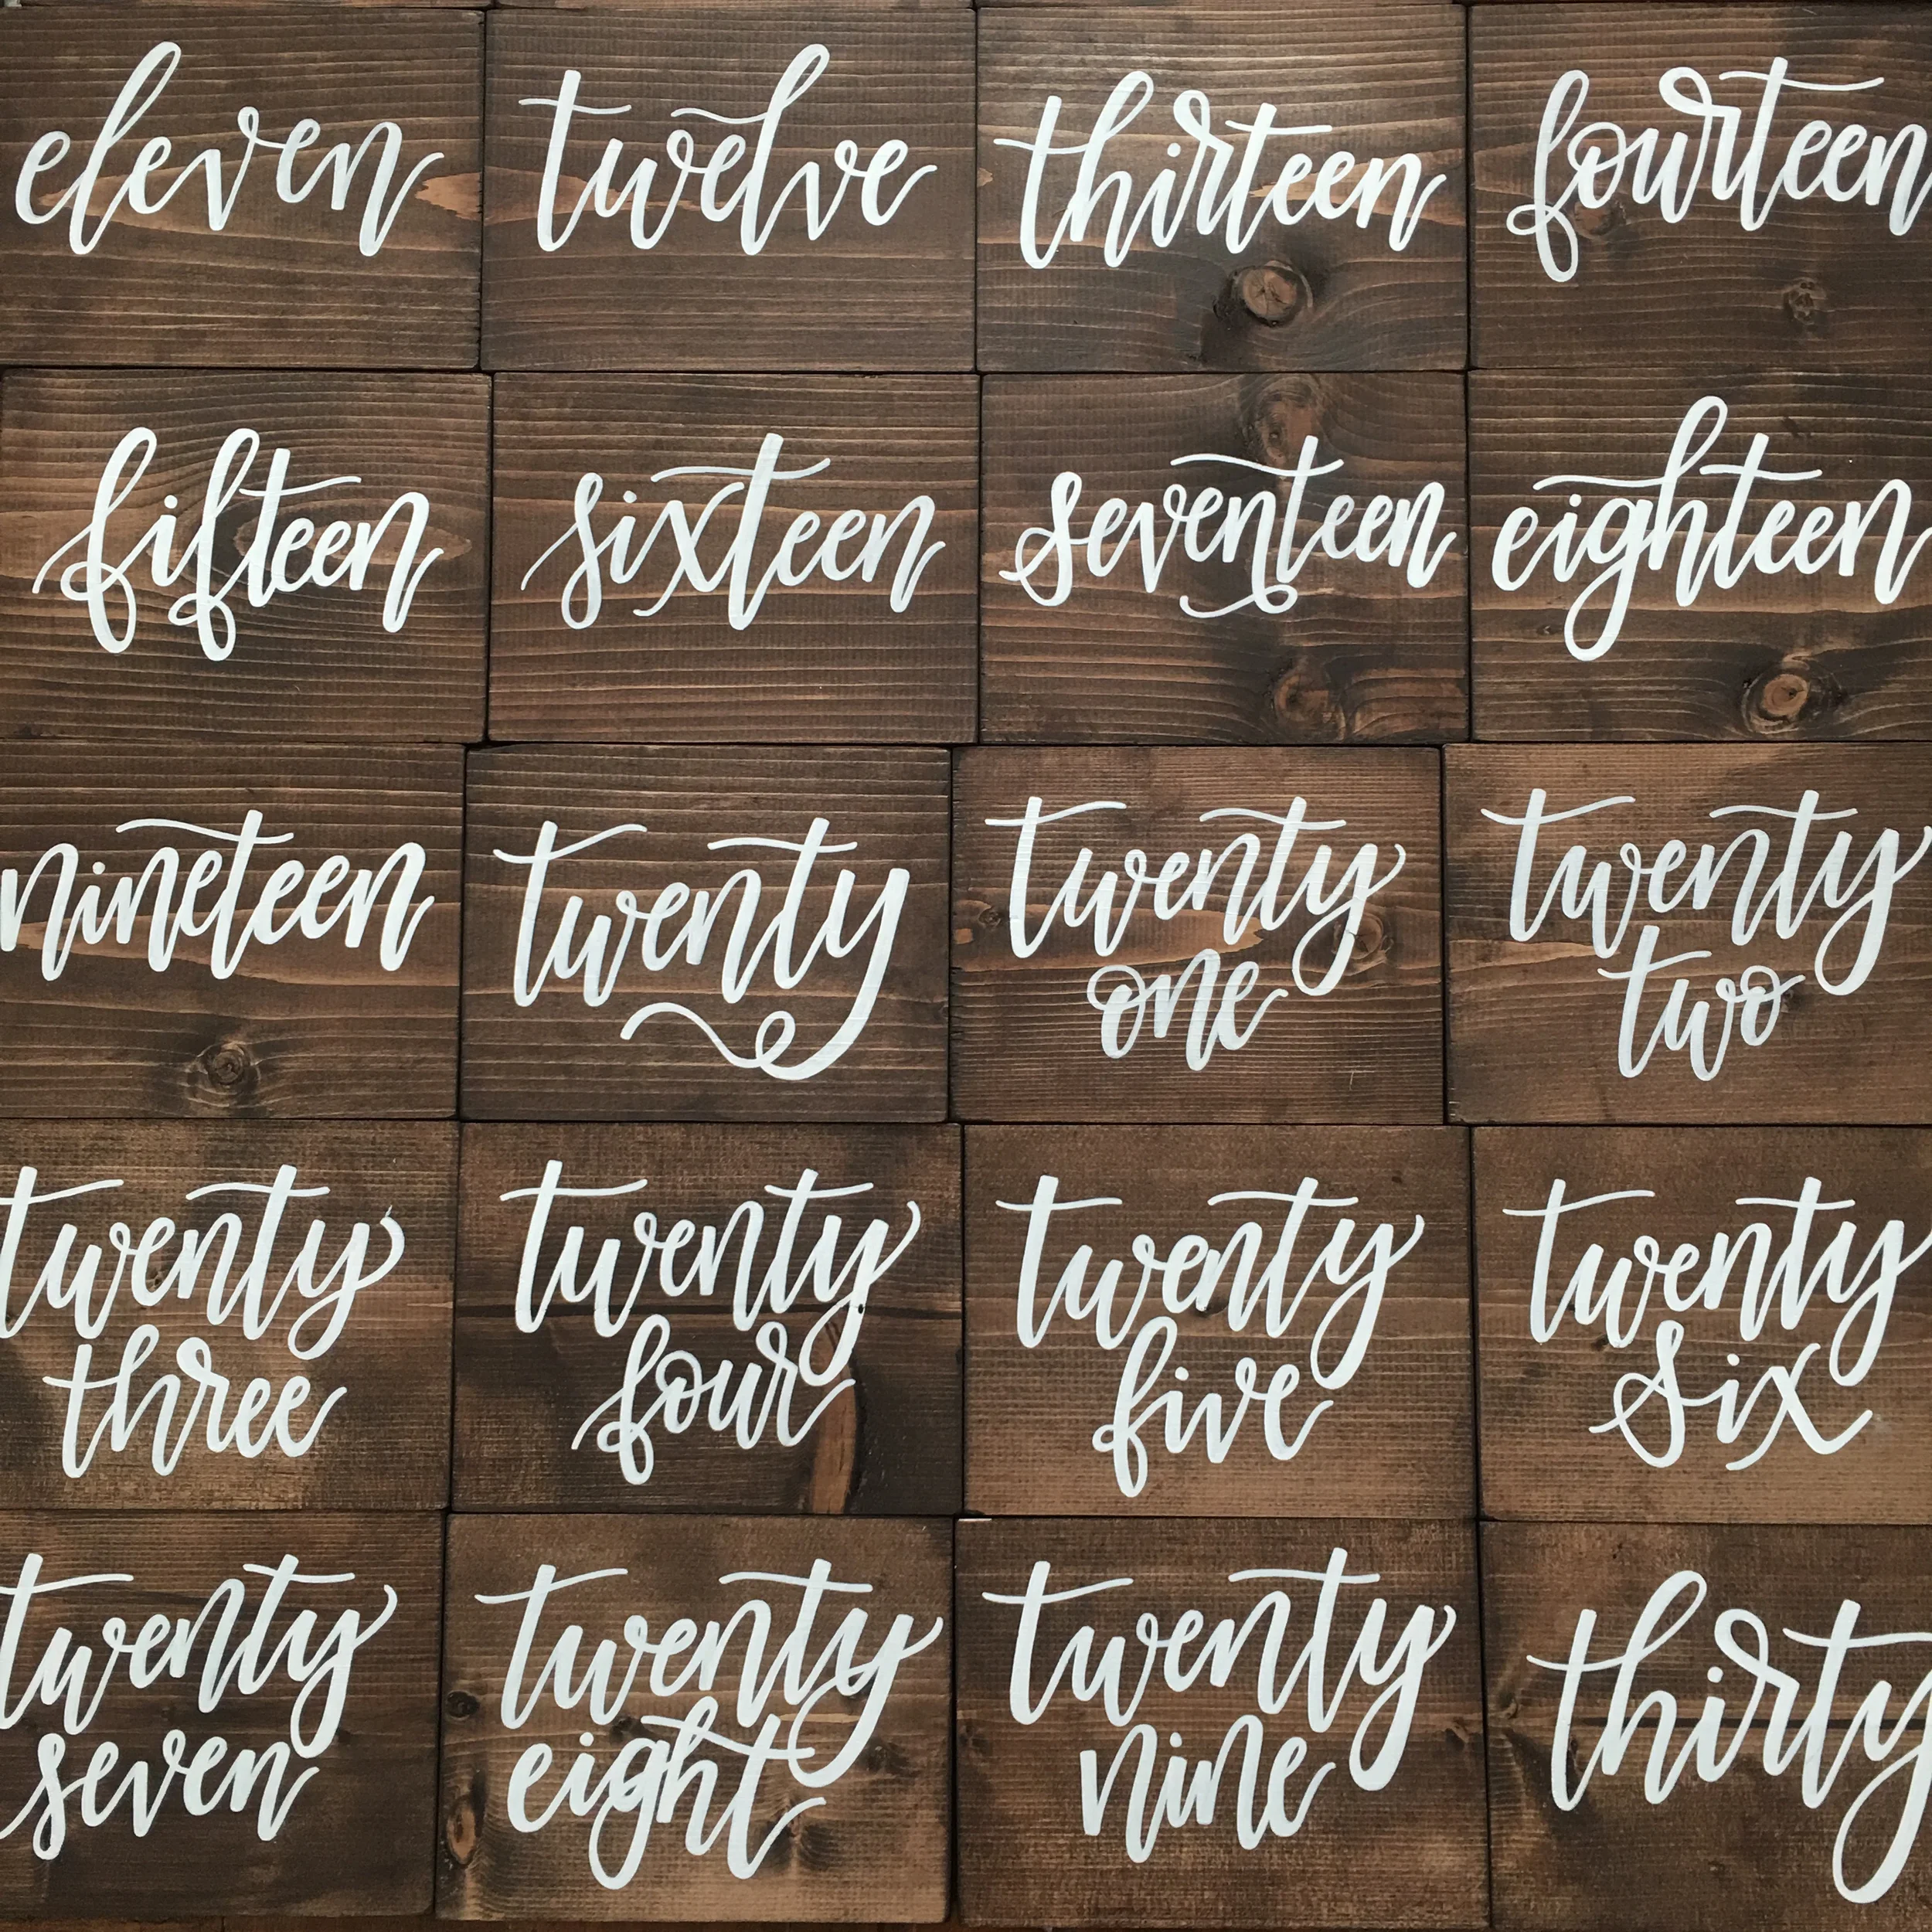 eleven
twelve
thirteen
fourteen
fifteen
sixteen
seventeen
eighteen
nineteen
twenty
twenty
one
twenty
two
twenty
three
twenty
four
twenty
five
twenty
six
twenty
seven
twenty
eight
twenty
nine
thirty